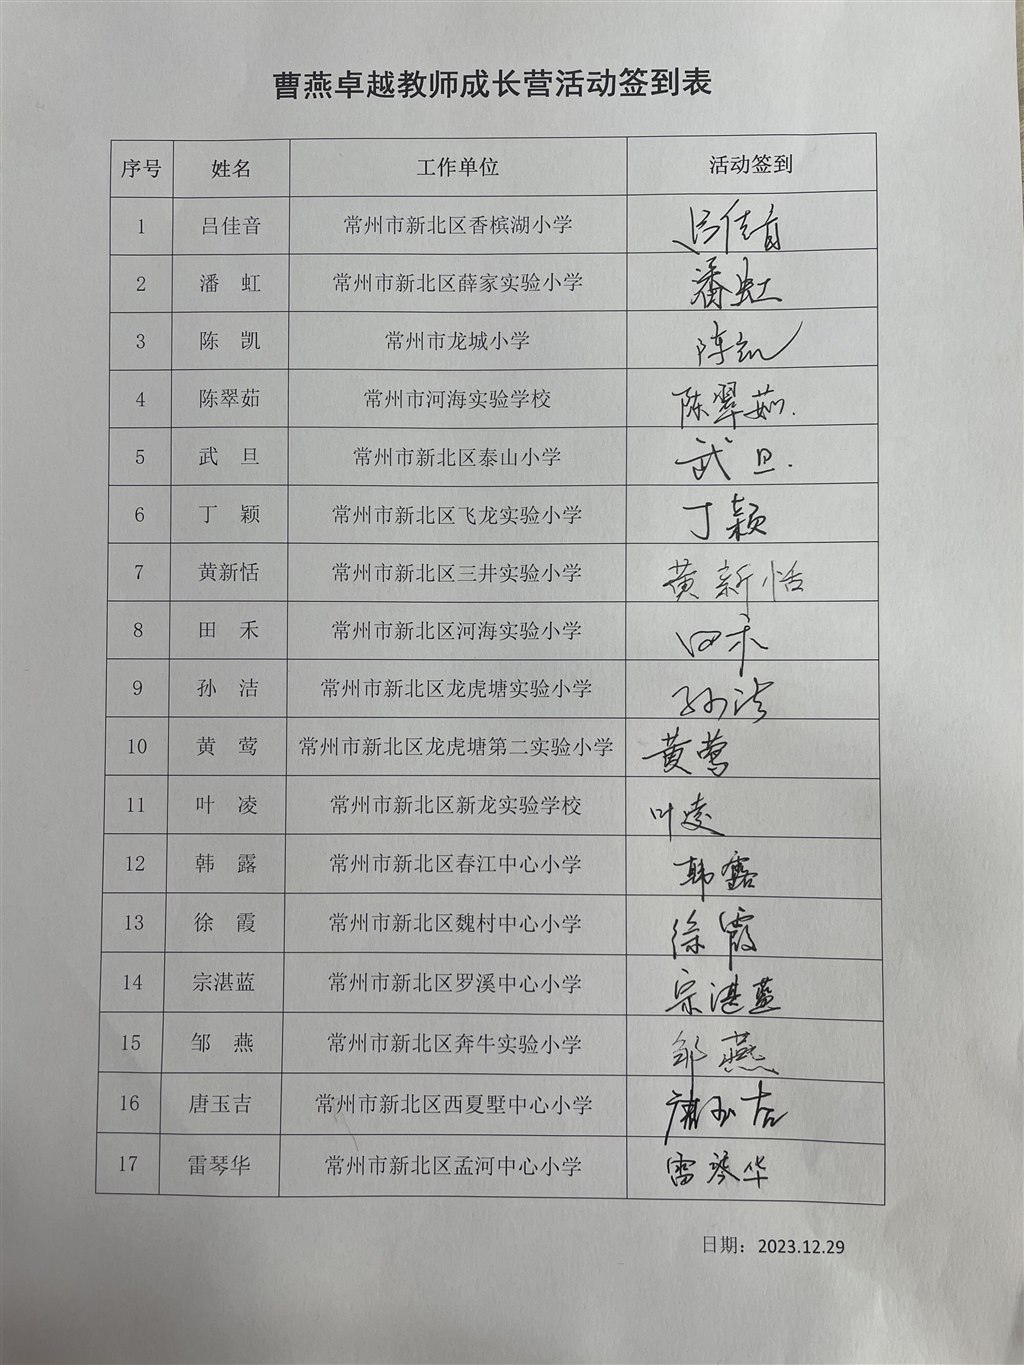 曹燕卓越教师成长营活动签到表
序号 姓名 工作单位 活动签到
1 吕佳音 常州市新北区香槟湖小学 吕佳音
2 潘 虹 常州市新北区薛家实验小学 潘虹
3 陈 凯 常州市龙城小学 陈凯
4 陈翠茹 常州市河海实验学校 陈翠茹.
5 武 旦 常州市新北区泰山小学 武旦.
6 丁 颖 常州市新北区飞龙实验小学 丁颖
7 黄新恬 常州市新北区三井实验小学 黄新恬
8 田 禾 常州市新北区河海实验小学 田禾
9 孙 洁 常州市新北区龙虎塘实验小学 孙洁
10 黄 莺 常州市新北区龙虎塘第二实验小学 黄莺
11 叶 凌 常州市新北区新龙实验学校 叶凌
12 韩 露 常州市新北区春江中心小学 韩露
13 徐 霞 常州市新北区魏村中心小学 徐霞
14 宗湛蓝 常州市新北区罗溪中心小学 宗湛蓝
15 邹 燕 常州市新北区奔牛实验小学 邹燕
16 唐玉吉 常州市新北区西夏墅中心小学 唐玉吉
17 雷琴华 常州市新北区孟河中心小学 雷琴华
日期：2023.12.29